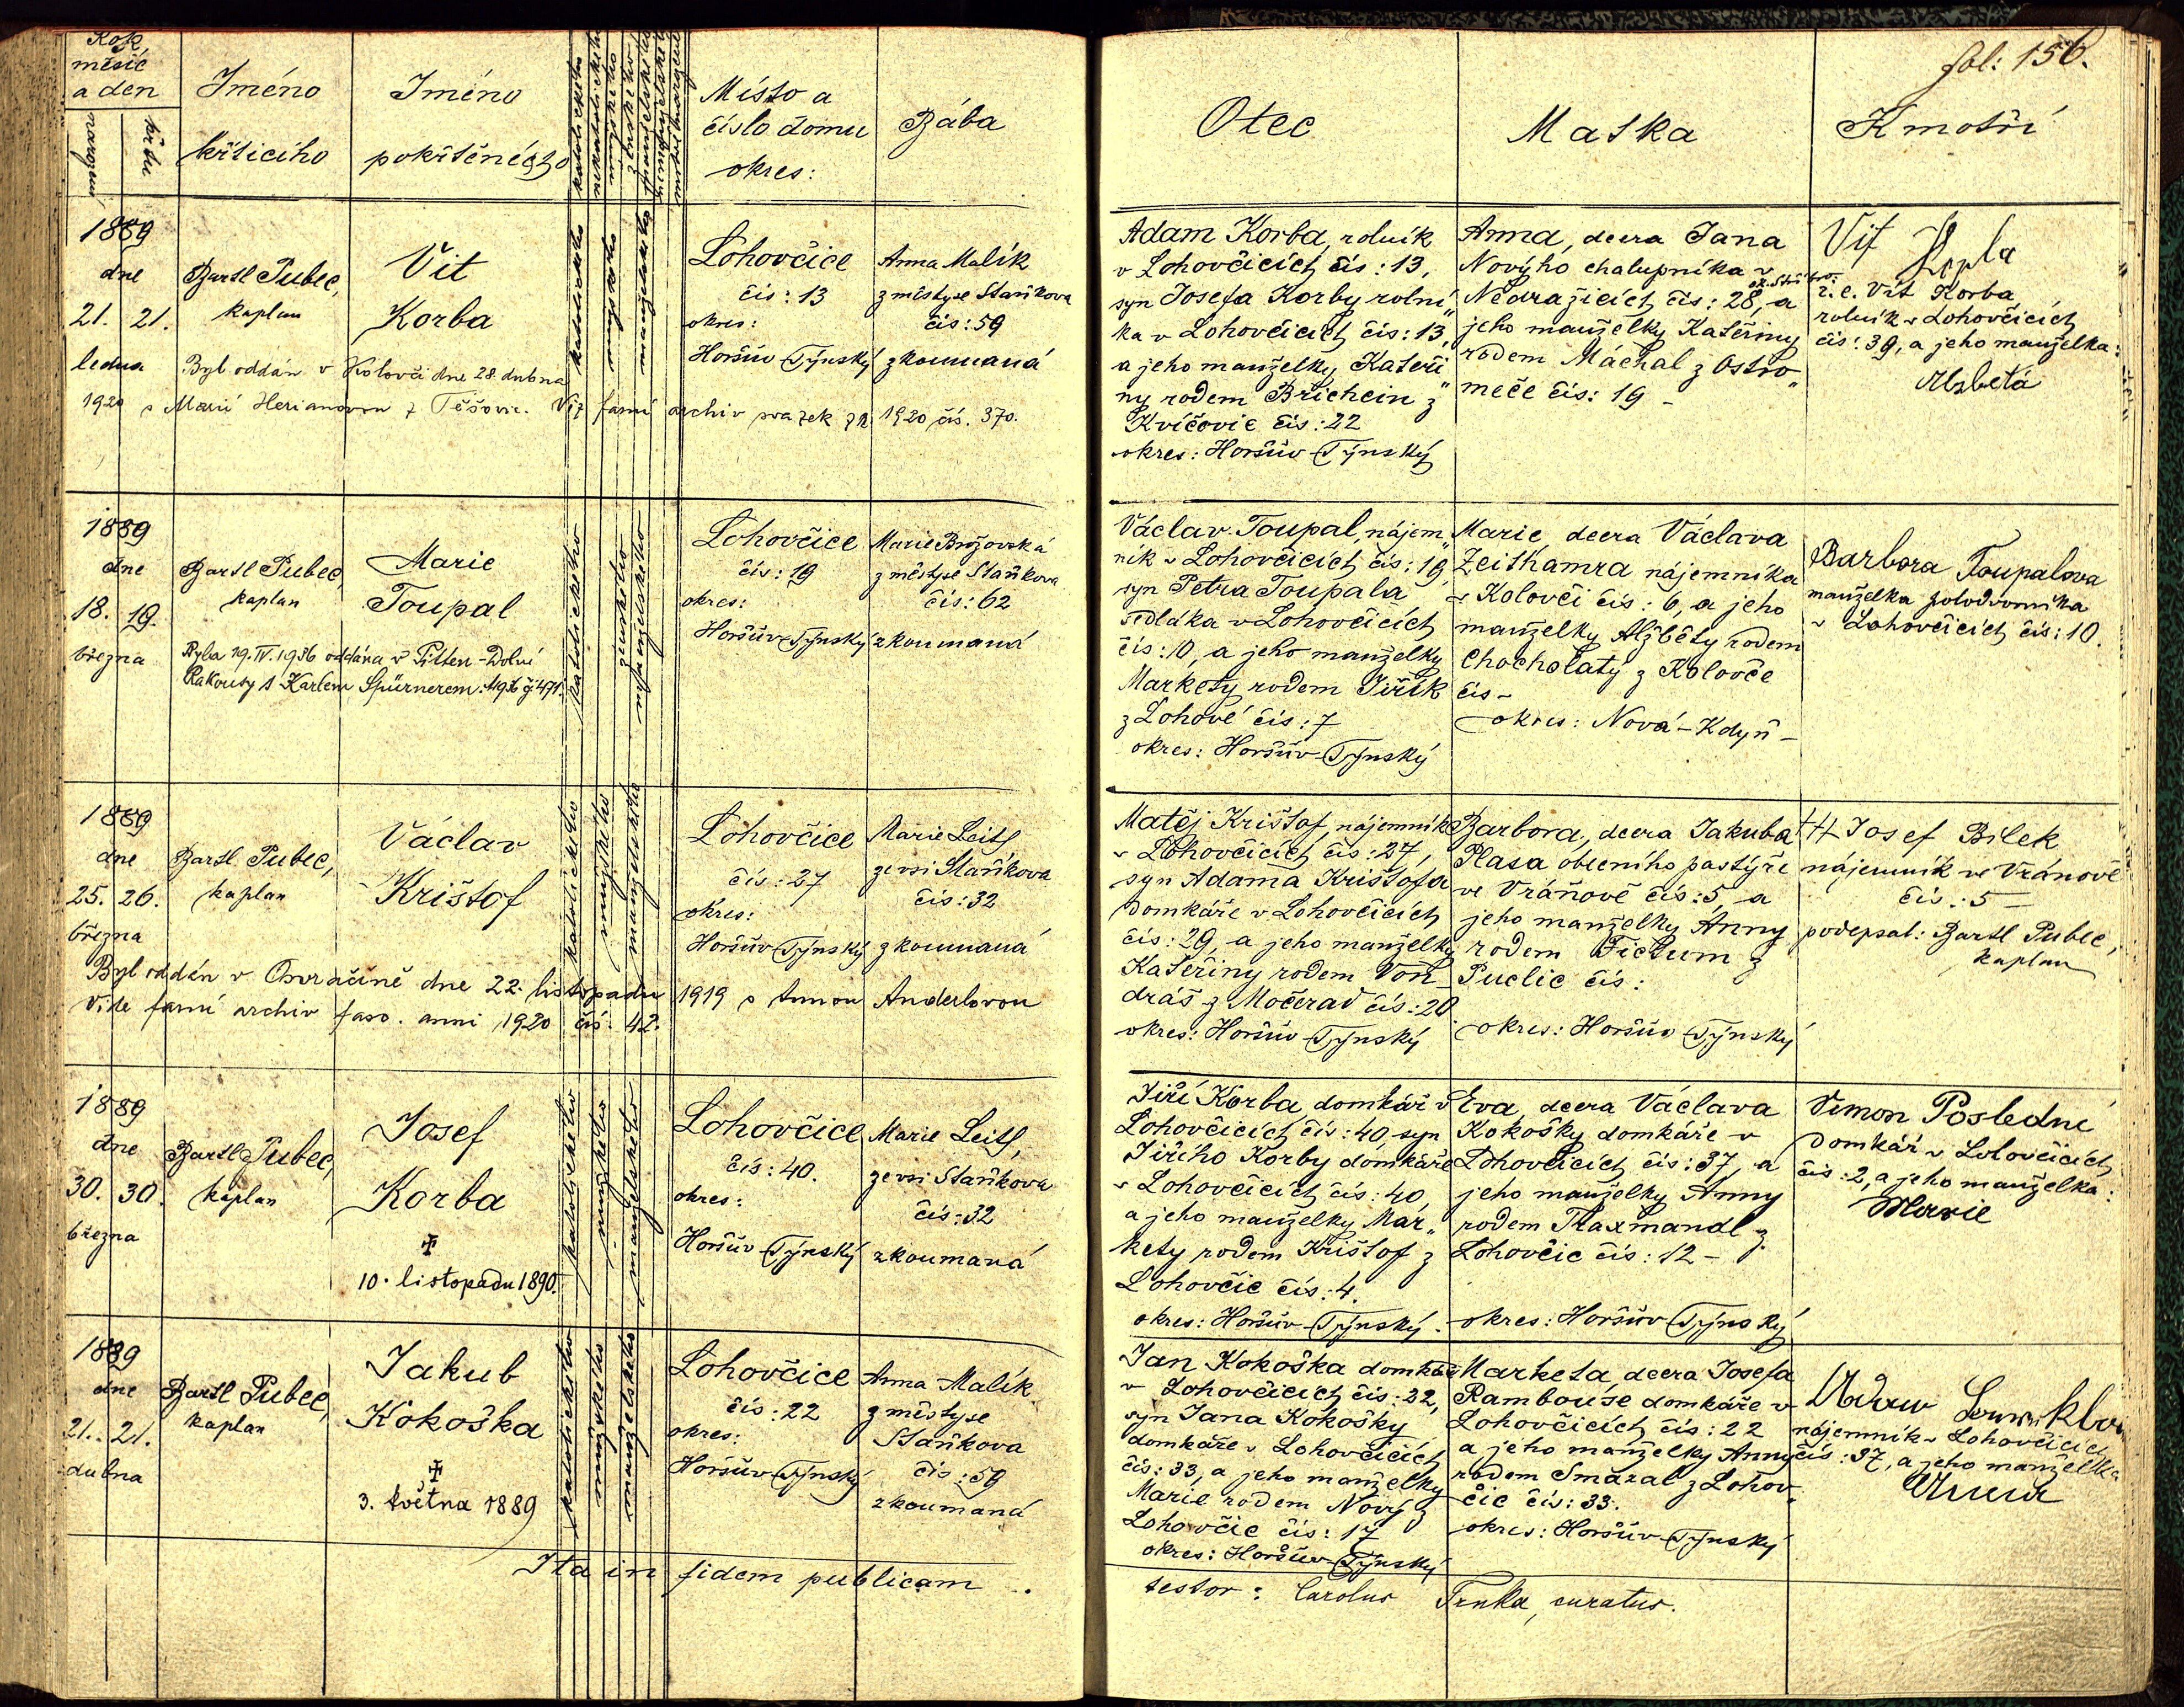 fol: 156.
Rok, měsíc a den
narození
křtu
Jméno křticího
Jméno pokřtěného
katolického
nekatolického
mužského
ženského
manželského
nemanželského
Místo a číslo domu okres:
Bába
Otec
Matka
Kmotři
1889
dne
21. 21.
ledna
Bartl Pubec,
kaplan
Vít
Korba
katolického
mužského
manželského
Lohovčice
čís: 13
okres:
Horšův Týnský
Anna Malík
z městyse Staňkova
čís: 59
zkoumaná
Byl oddán v Kolovči dne 28. dubna
1920 s Marií Herianovou z Těšovic. Viz farní archiv svazek 1920 čís. 370.
Adam Korba, rolník
v Lohovčicích čís: 13,
syn Josefa Korby rolní„
ka v Lohovčicích čís: 13,
a jeho manželky Kateři„
ny rodem Brichcin z
Kvíčovic čís: 22
okres: Horšův Týnský
Anna, dcera Jana
Nového chalupníka v
ok. Stříbro
Nedražicích čís: 28, a
jeho manželky Kateřiny
rodem Máchal z Ostro„
meče čís: 19 –
Vít
i.e. Vít Korba,
rolník v Lohovčicích
čís: 39, a jeho manželka:
Alžbětá
1889
dne
18. 19.
března
Bartl Pubec,
kaplan
Marie
Toupal
katolického
ženského
manželského
Lohovčice
čís: 19
okres:
Horšův Týnský
Marie Brožovská
z městyse Staňkova
čís: 62
zkoumaná
Byla 19. IV. 1936 oddána v Pitten-Dolní
Rakousy s Karlem Spürnerem. 1936 č 471.
Václav Toupal, nájem„
ník v Lohovčicích čís: 19,
syn Petra Toupala
sedláka v Lohovčicích
čís: 10, a jeho manželky
Markety rodem Jiřík
z Lohové čís: 7
okres: Horšův Týnský
Marie, dcera Václava
Zeithamra nájemníka
v Kolovči čís: 6, a jeho
manželky Alžběty rodem
Chocholatý z Kolovče
čís –
okres: Nová-Kdyň –
Barbora Toupalova
manželka polodvorníka
v Lohovčicích čís: 10.
1889
dne
25. 26.
března
Bartl Pubec,
kaplan
Václav
Krištof
katolického
mužského
manželského
Lohovčice
čís: 27
okres:
Horšův Týnský
Marie Leitl
ze vsi Staňkova
čís: 32
zkoumaná
Byl oddán v Osvračíně dne 22. listopadu 1919 s Annou Anderlovou
Vide farní archiv fasc. anni 1920 čís. 42.
Matěj Krištof, nájemník
v Lohovčicích čís: 27,
syn Adama Krištofa
domkáře v Lohovčicích
čís: 29, a jeho manželky
Kateřiny rodem Von„
dráš z Močerad čís: 20
okres: Horšův Týnský
Barbora, dcera Jakuba
Plasa obecního pastýře
ve Vránově čís: 5, a
jeho manželky Anny
rodem Fictum z
Puclic čís:
okres: Horšův Týnský
††† Josef Bílek
nájemník ve Vránově
čís: 5 –
podepsal: Bartl Pubec,
kaplan
1889
dne
30. 30.
března
Bartl Pubec,
kaplan
Josef
Korba
✝
10. listopadu 1890.
katolického
mužského
manželského
Lohovčice
čís: 40.
okres:
Horšův Týnský
Marie Leitl,
ze vsi Staňkova
čís: 32
zkoumaná
Jiří Korba, domkář v
Lohovčicích čís: 40, syn
Jiřího Korby domkáře
v Lohovčicích čís: 40,
a jeho manželky Mar„
kety rodem Krištof z
Lohovčic čís: 4.
okres: Horšův Týnský.
Eva, dcera Václava
Kokošky domkáře v
Lohovčicích čís: 37, a
jeho manželky Anny
rodem Flaxmandl z
Lohovčic čís: 12 –
okres: Horšův Týnský
Šimon Poslední
domkář v Lohovčicích
čís: 2, a jeho manželka:
Marie
1889
dne
21. 21.
dubna
Bartl Pubec,
kaplan
Jakub
Kokoška
✝
3. května 1889
katolického
mužského
manželského
Lohovčice
čís: 22
okres:
Horšův Týnský
Anna Malík
z městyse
Staňkova
čís: 59
zkoumaná
Jan Kokoška domkář
v Lohovčicích čís: 22,
syn Jana Kokošky
domkáře v Lohovčicích
čís: 33, a jeho manželky
Marie rodem Nový z
Lohovčic čís: 17
okres: Horšův Týnský
Marketa, dcera Josefa
Rambouse domkáře v
Lohovčicích čís: 22
a jeho manželky Anny
rodem Smazal z Lohov„
čic čís: 33.
okres: Horšův Týnský
Adam
nájemník v Lohovčicích
čís: 37, a jeho manželka
Anna
Ita in fidem publicam
testor: Carolus Trnka, curatus.